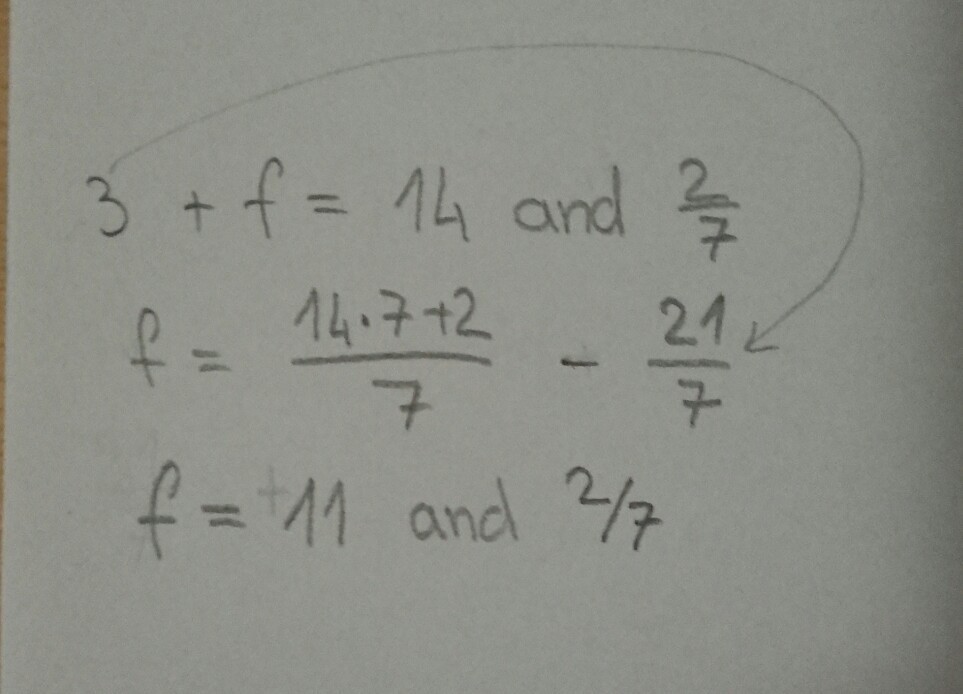 3 + f = 14 and 2/7
f = (14·7+2)/7 - 21/7
f = +11 and 2/7